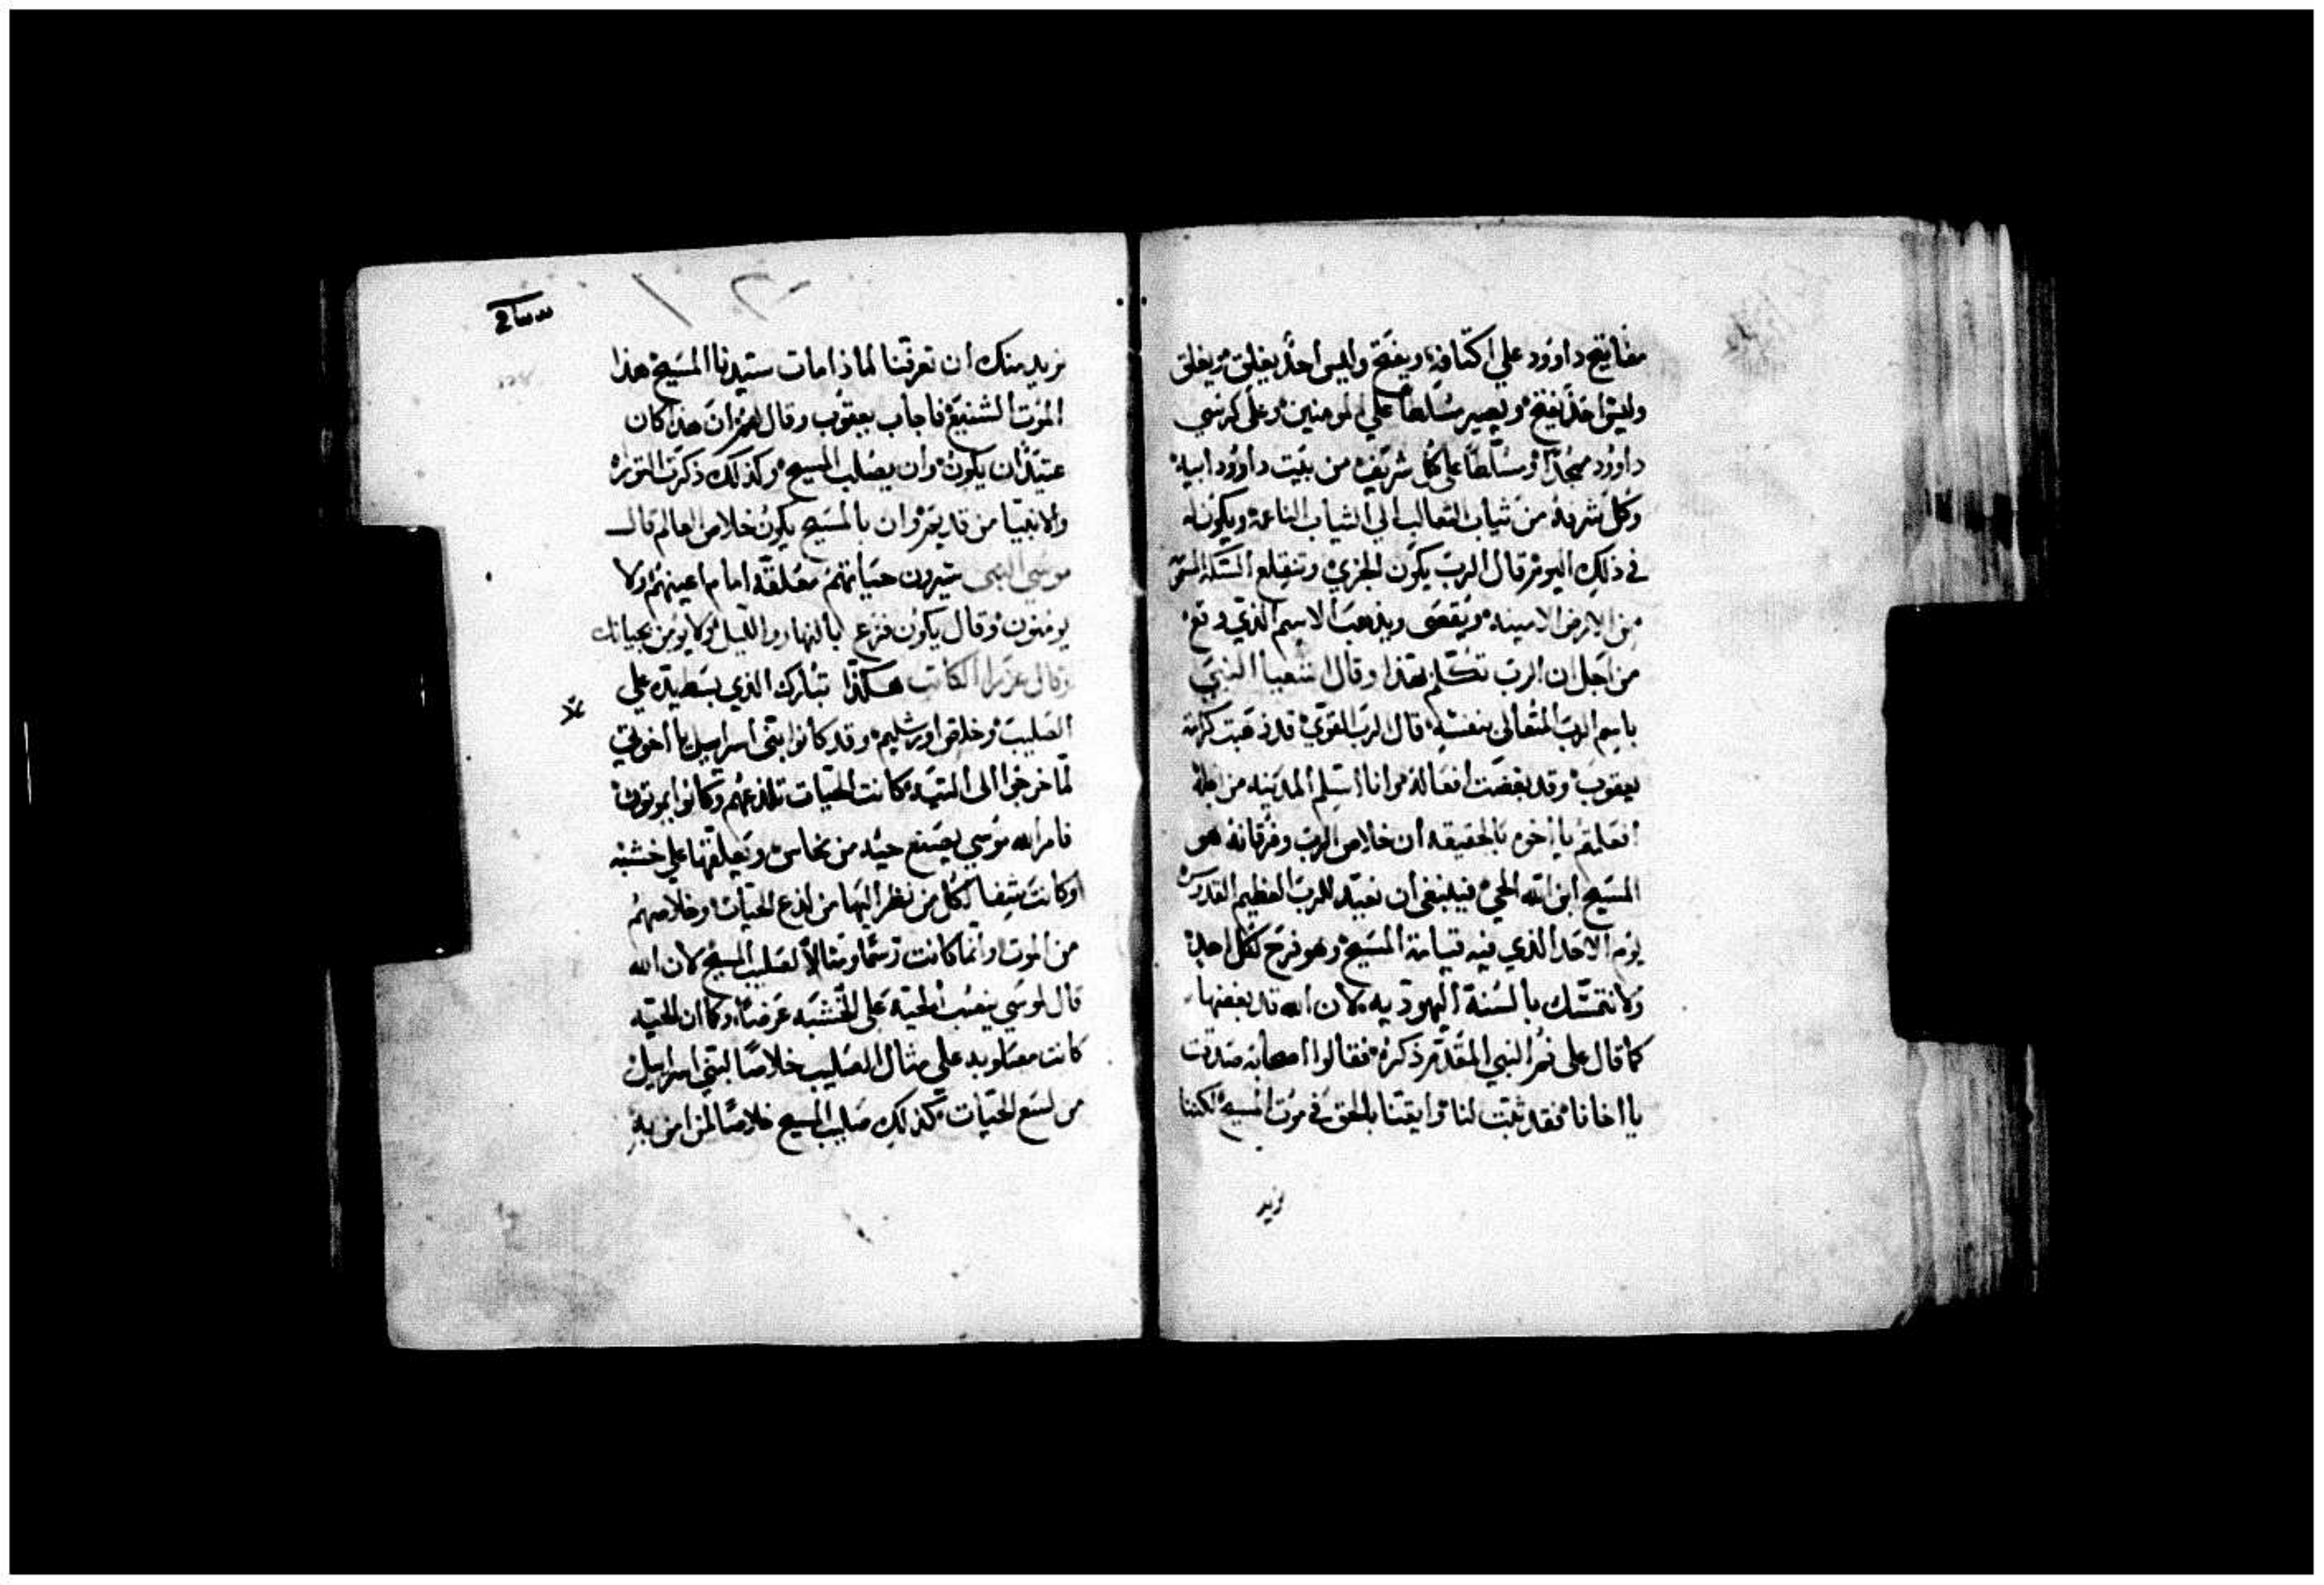 مفاتيح داوود علي اكتافه ويفتح وليس احدا يغلق ويغلق
وليس احدا يفتح ويصير مسلطا علي المومنين وعلي كرسي
داوود ممجدا ومسلطا علي كل شريف من بيت داوود ابيه
وكل شرفه من ثياب التعالب الي الثياب الناعمه ويكون له
في ذلك اليوم قال الرب يكون الجزي وتنقلع
من الارض الامينه ويقضي ويذهب الاسم الذي وقع
من اجل ان الرب تكلم بهذا وقال اشعيا النبي
باسم الرب المتعالي بنفسه قال الرب القوي قد ذهبت كرامة
يعقوب وقد بغضت افعاله وانا اسلم المدينه من اجله
افعلم يا اخوه بالحقيقه ان خلاص الرب وفرقانه هو
المسيح ابن الله الحي فينبغي ان نعيد للرب العظيم القدوس
يوم الاحد الذي فيه قيامة المسيح وهو فرح لكل احد
ولا نتمسك بالسنة اليهوديه لان الله قد بغضها
كما قال علي فم النبي المقدم ذكره فقالوا اصحابه صدقت
يا اخانا فقد ثبت لنا وايقنا بالحق في موت المسيح لكننا
نريد
نريد منك ان تعرفنا لماذا مات سيدنا المسيح هذا
الموت الشنيع فاجاب يعقوب وقال لهم ان هذا كان
عتيدا ان يكون وان يصلب المسيح وكذلك ذكرت التوراه
والانبيا من قديم وان بالمسيح يكون خلاص العالم قال
موسي النبي سترون حياتهم معلقه امام اعينهم ولا
يومنون وقال يكون فزع بالنهار والليل ولا يومن بحياتك
وقال عزرا الكاتب هكذا تبارك الذي بسط يده علي
الصليب وخلص اورشليم وقد كانوا بني اسراييل يا اخوتي
لما خرجوا الى التيه كانت الحيات تلدغهم وكانوا يموتون
فامر الله موسي يصنع حيه من نحاس ويعلقها علي خشبه
وكانت شفا لكل من نظر اليها من لدغ الحيات وخلاصهم
من الموت وانما كانت رسما ومثالا لصليب المسيح لان الله
قال لموسي ينصب الحيه على الخشبه عرضا وكما ان الحيه
كانت مصلوبه علي مثال الصليب خلاصا لبني اسراييل
من لسع الحيات كذلك صليب المسيح خلاصا لمن امن به